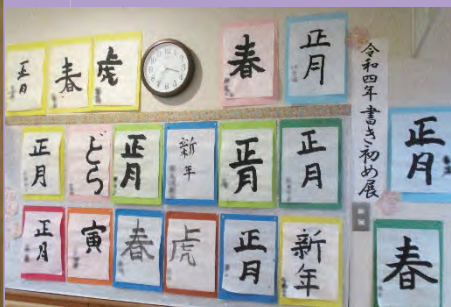 正月
春
虎
春
正月
令和四年書き初め展
正月
どら
正月
新年
正月
正月
正月
正月
寅
春
虎
正月
新年
春